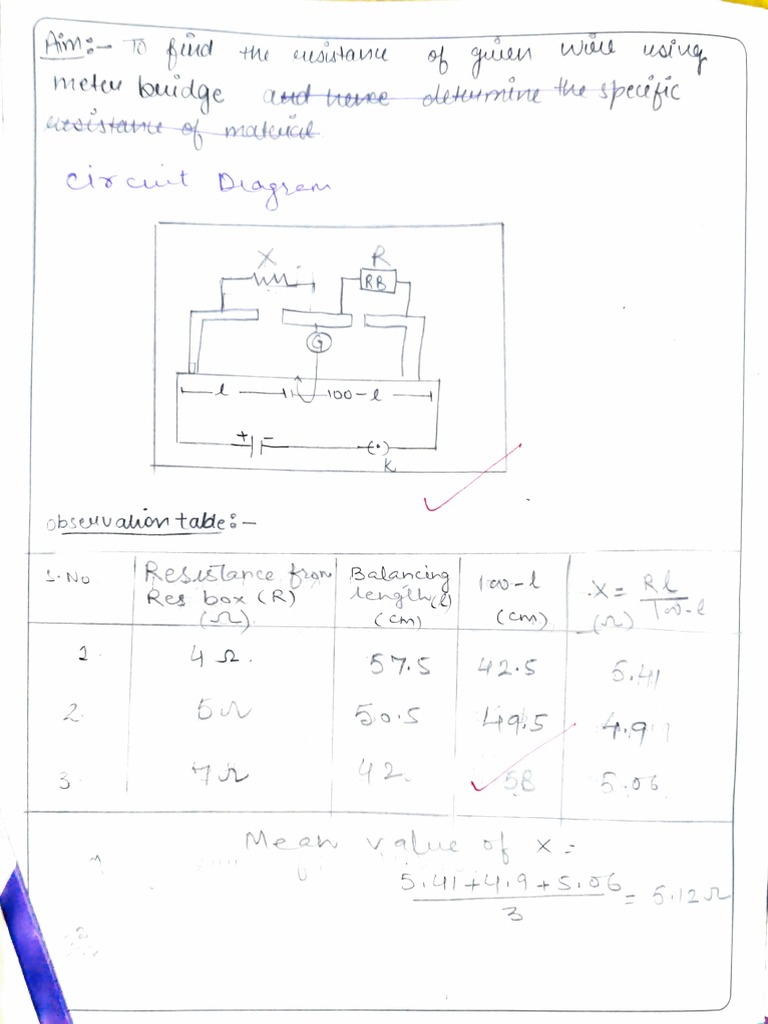 Aim:- To find the resistance of given wire using
meter bridge and hence determine the specific
resistance of material
Circuit Diagram
X R
RB
G
l 100-l
+ -
K
Observation table:-
S.No Resistance from Res box (R) (Ω) Balancing length(l) (cm) 100-l (cm) X = Rl/100-l (Ω)
1. 4 Ω. 57.5 42.5 5.41
2. 5Ω 50.5 49.5 4.9
3. 7Ω 42. 58 5.06
Mean value of x =
5.41+4.9+5.06/3 = 5.12Ω